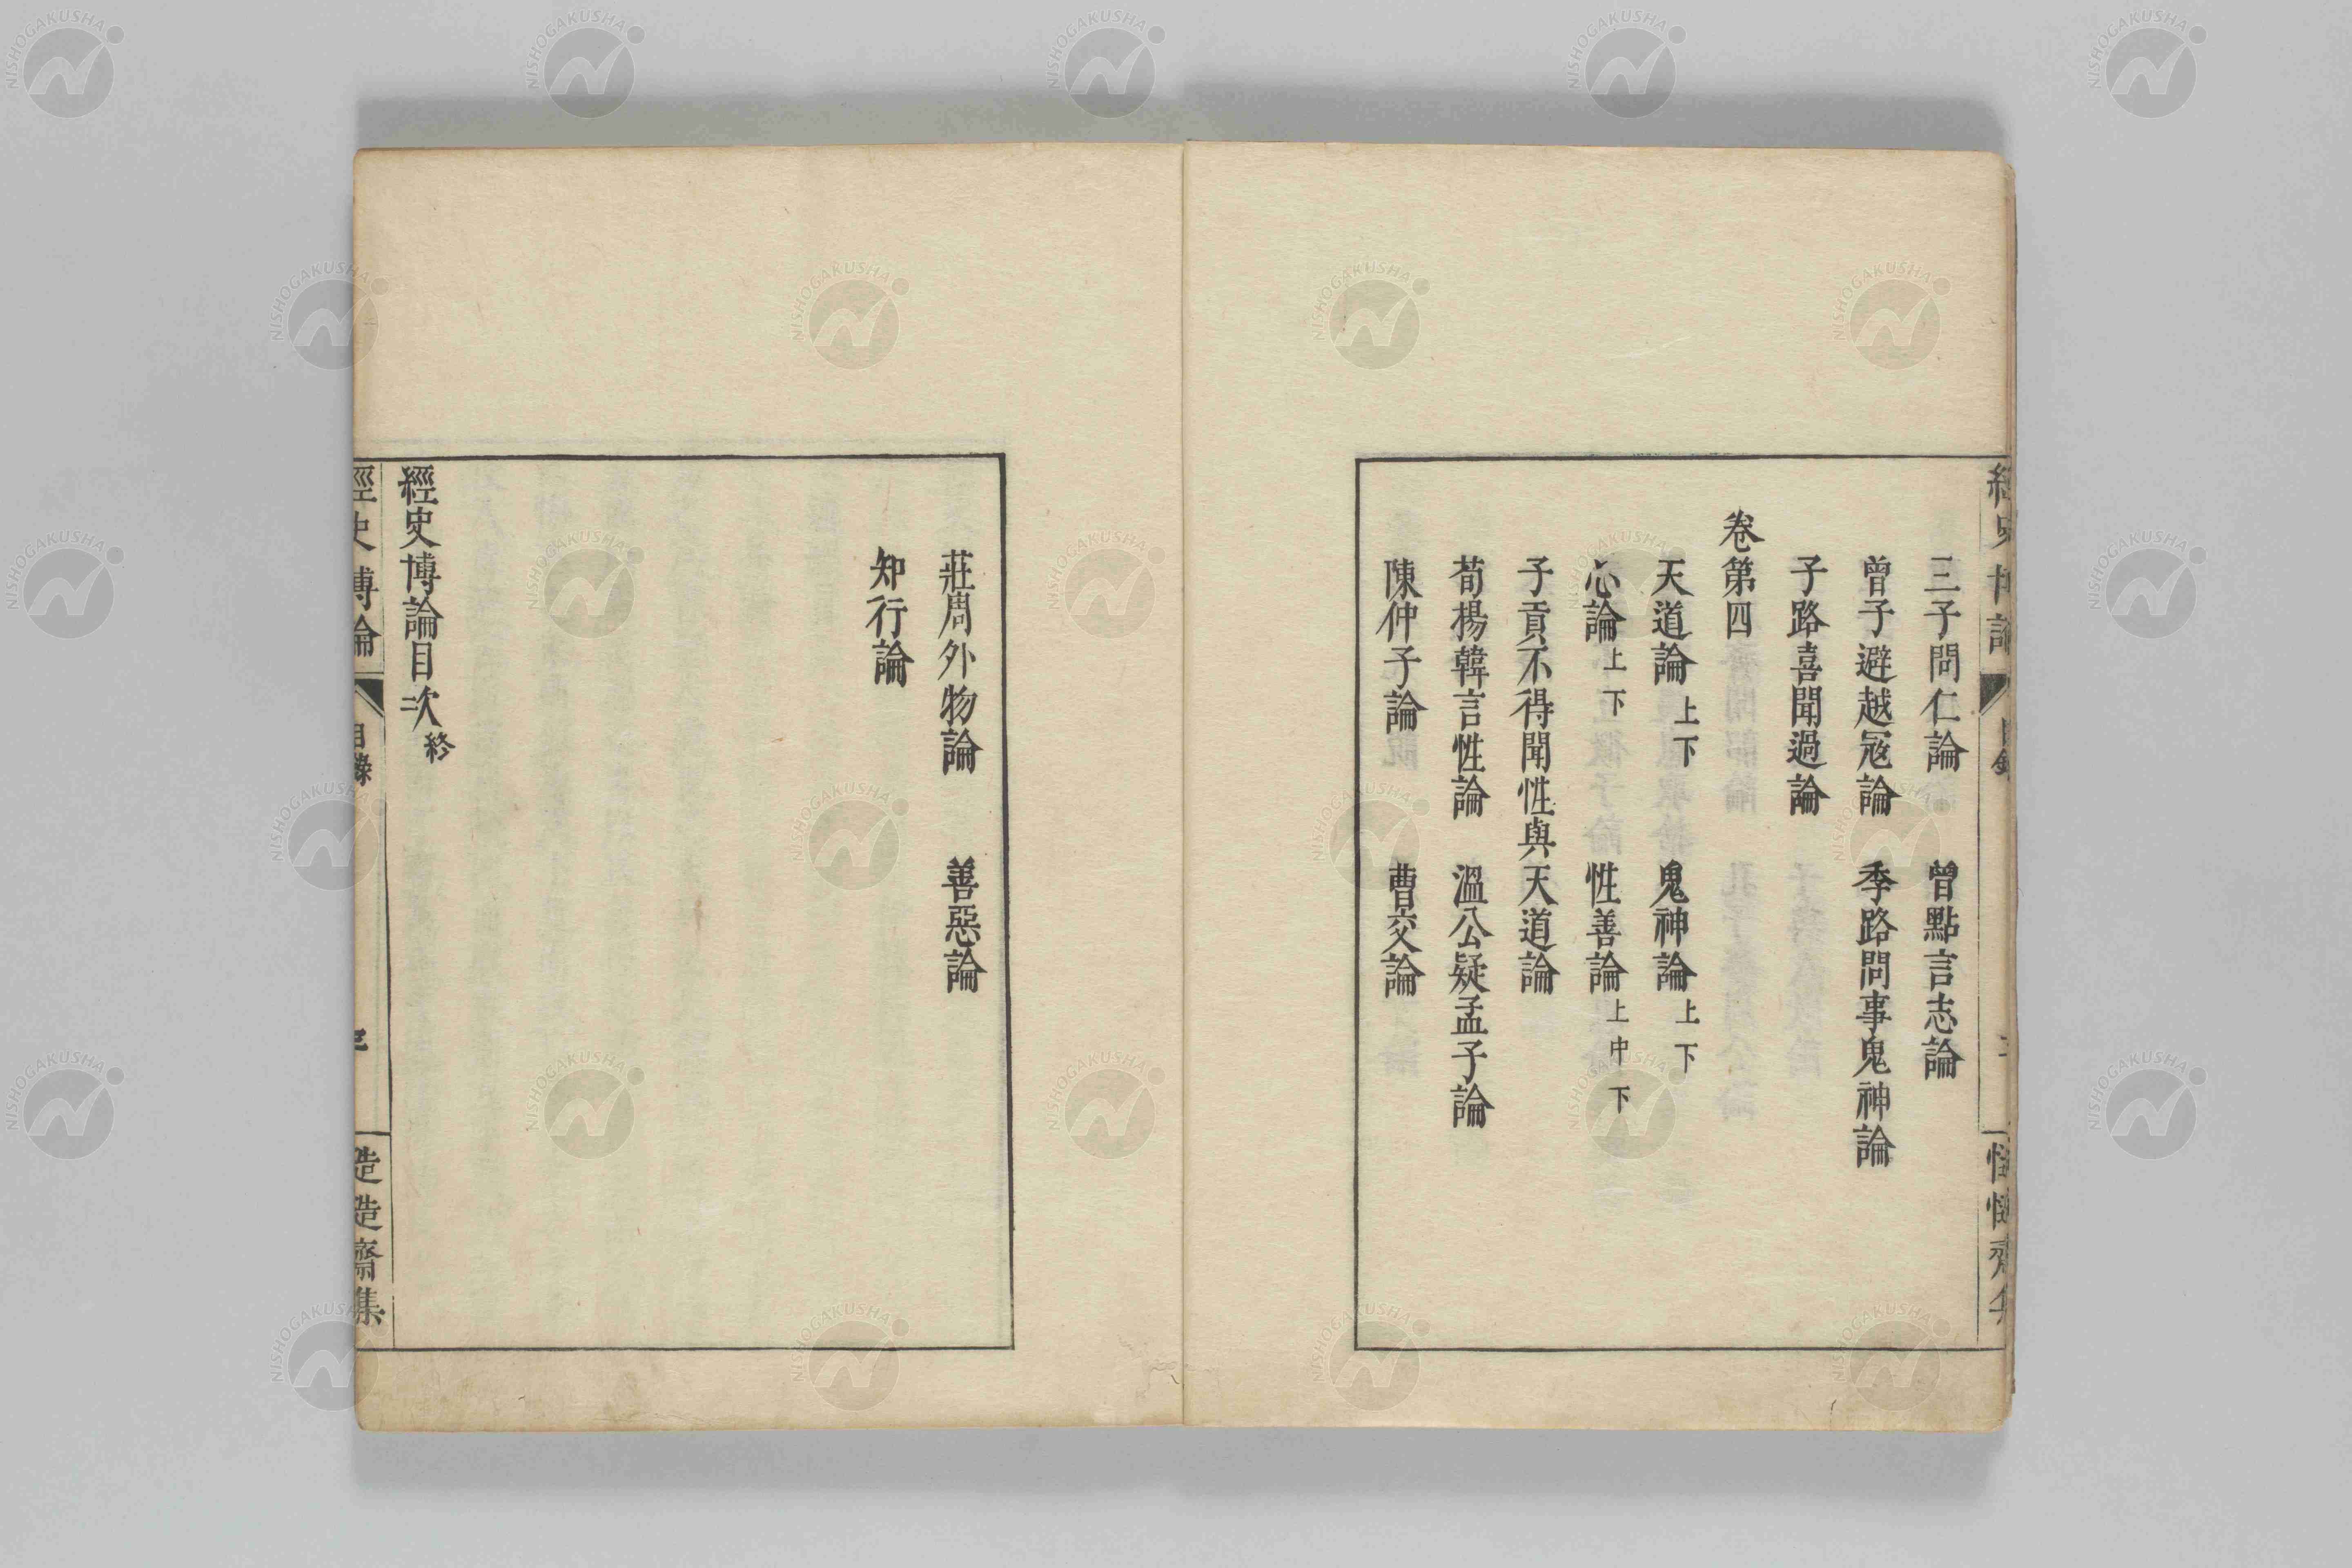 三子問仁論 曾點言志論
曾子避越寇論 季路問事鬼神論
子路喜聞過論
卷第四
天道論上下 鬼神論上下
心論上下 性善論上中下
子貢不得聞性與天道論
荀揚韓言性論 溫公疑孟子論
陳仲子論 曹交論
莊周外物論 善惡論
知行論
經史博論目次終
經史博論 目錄 三 慥慥齋集
NISHOGAKUSHA